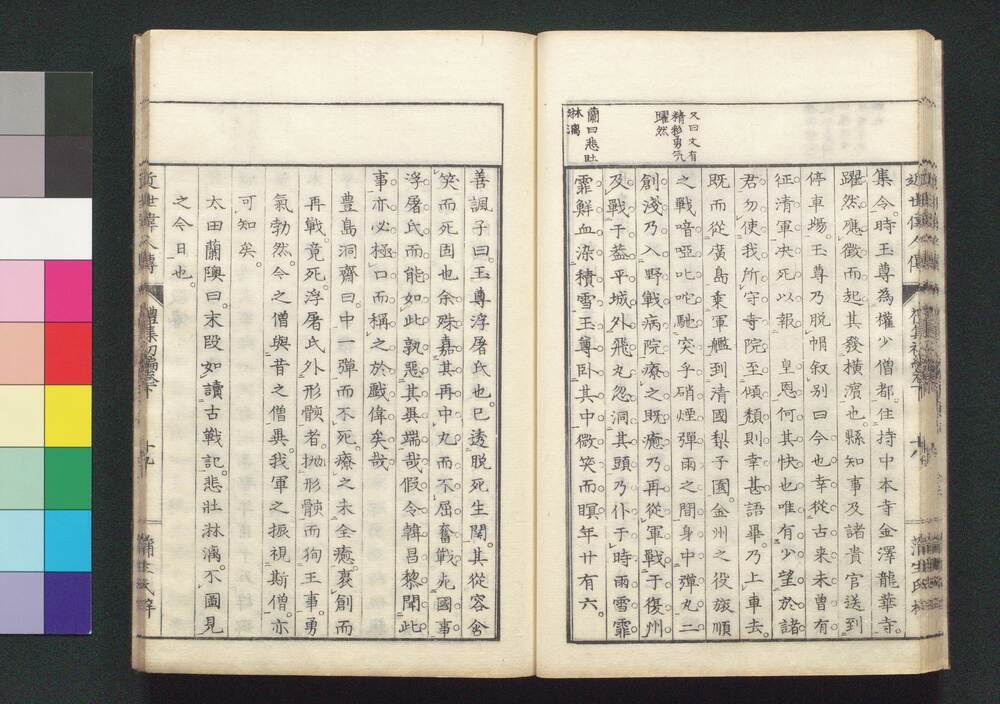 又曰文有
精彩勇気
躍然
蘭曰悲壮
淋漓
集令時玉尊為權少僧都住持中本寺金澤龍華寺
躍然應徴而起其發横濵也縣知事及諸貴官送到
停車場玉尊乃脱帽叙別曰今也幸從古来未曽有
征清軍决死以報　皇恩何其快也唯有少望於諸
君勿使我所守寺院至傾頽則幸甚語畢乃上車去
既而從廣島乗軍艦到清國梨子園金州之役旅順
之戰喑啞叱咤馳突乎硝煙彈雨之間身中彈丸二
創淺乃入野戰病院療之既癒乃再從軍戰于復州
及戰于葢平城外飛丸忽洞其頭乃仆于時雨雪霏
霏鮮血染積雪玉尊卧其中微笑而瞑年廿有六
近世偉人傳
十八
蒲生氏梓
善諷子曰玉尊浮屠氏也已透脱死生関其從容含
笑而死固也余殊嘉其再中丸而不屈奮戰死國事
浮屠氏而能如此孰惡其異端哉假令韓昌黎聞此
事亦必極口而稱之於戯偉矣哉
豊島洞齋曰中一彈而不死療之未全癒褁創而
再戰竟死浮屠氏外形骸者抛形骸而狥王事勇
氣勃然今之僧與昔之僧異我軍之振視斯僧亦
可知矣
太田蘭陝曰末段如讀古戰記悲壯淋漓不圖見
之今日也
近世偉人傳
禮集初編卷下
十九
蒲生氏梓